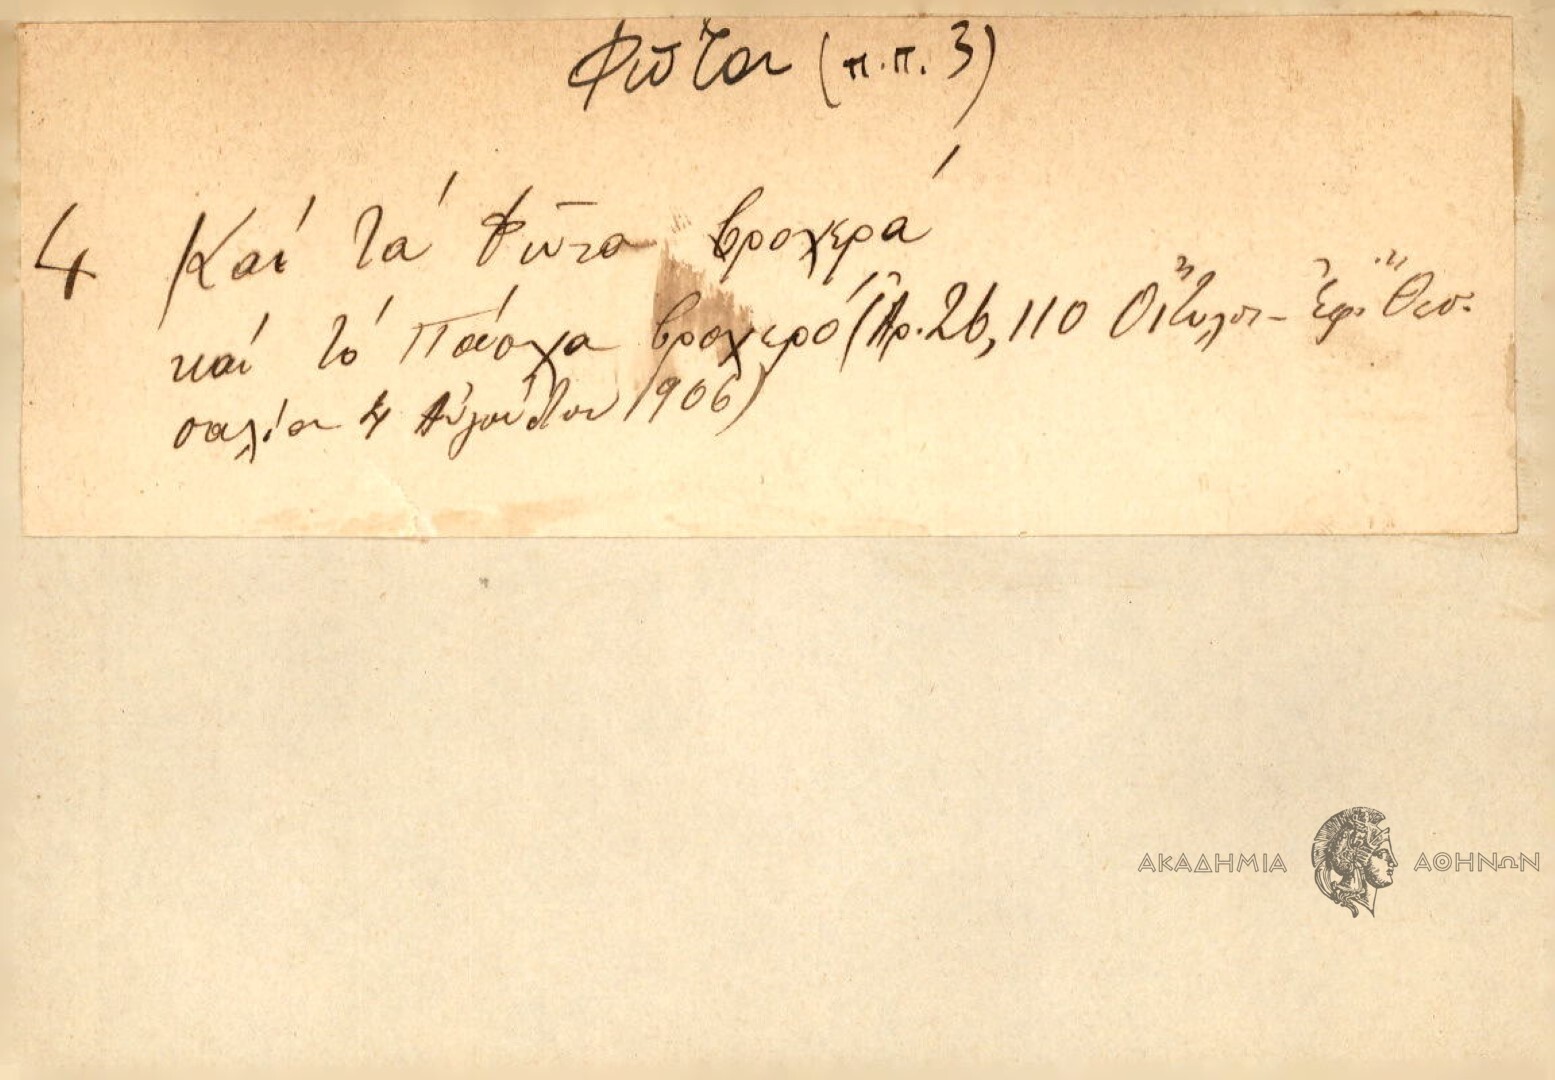 Φῶτα (π.π. 3)
4 Καί τά Φῶτα βροχερά
καί τό Πάσχα βροχερό (Ἀρ. 26, 110 Οἴτυλος - Ἐφ. Θεσ-
σαλία 4 Αὐγούστου 1906)
ΑΚΑΔΗΜΙΑ ΑΘΗΝΩΝ